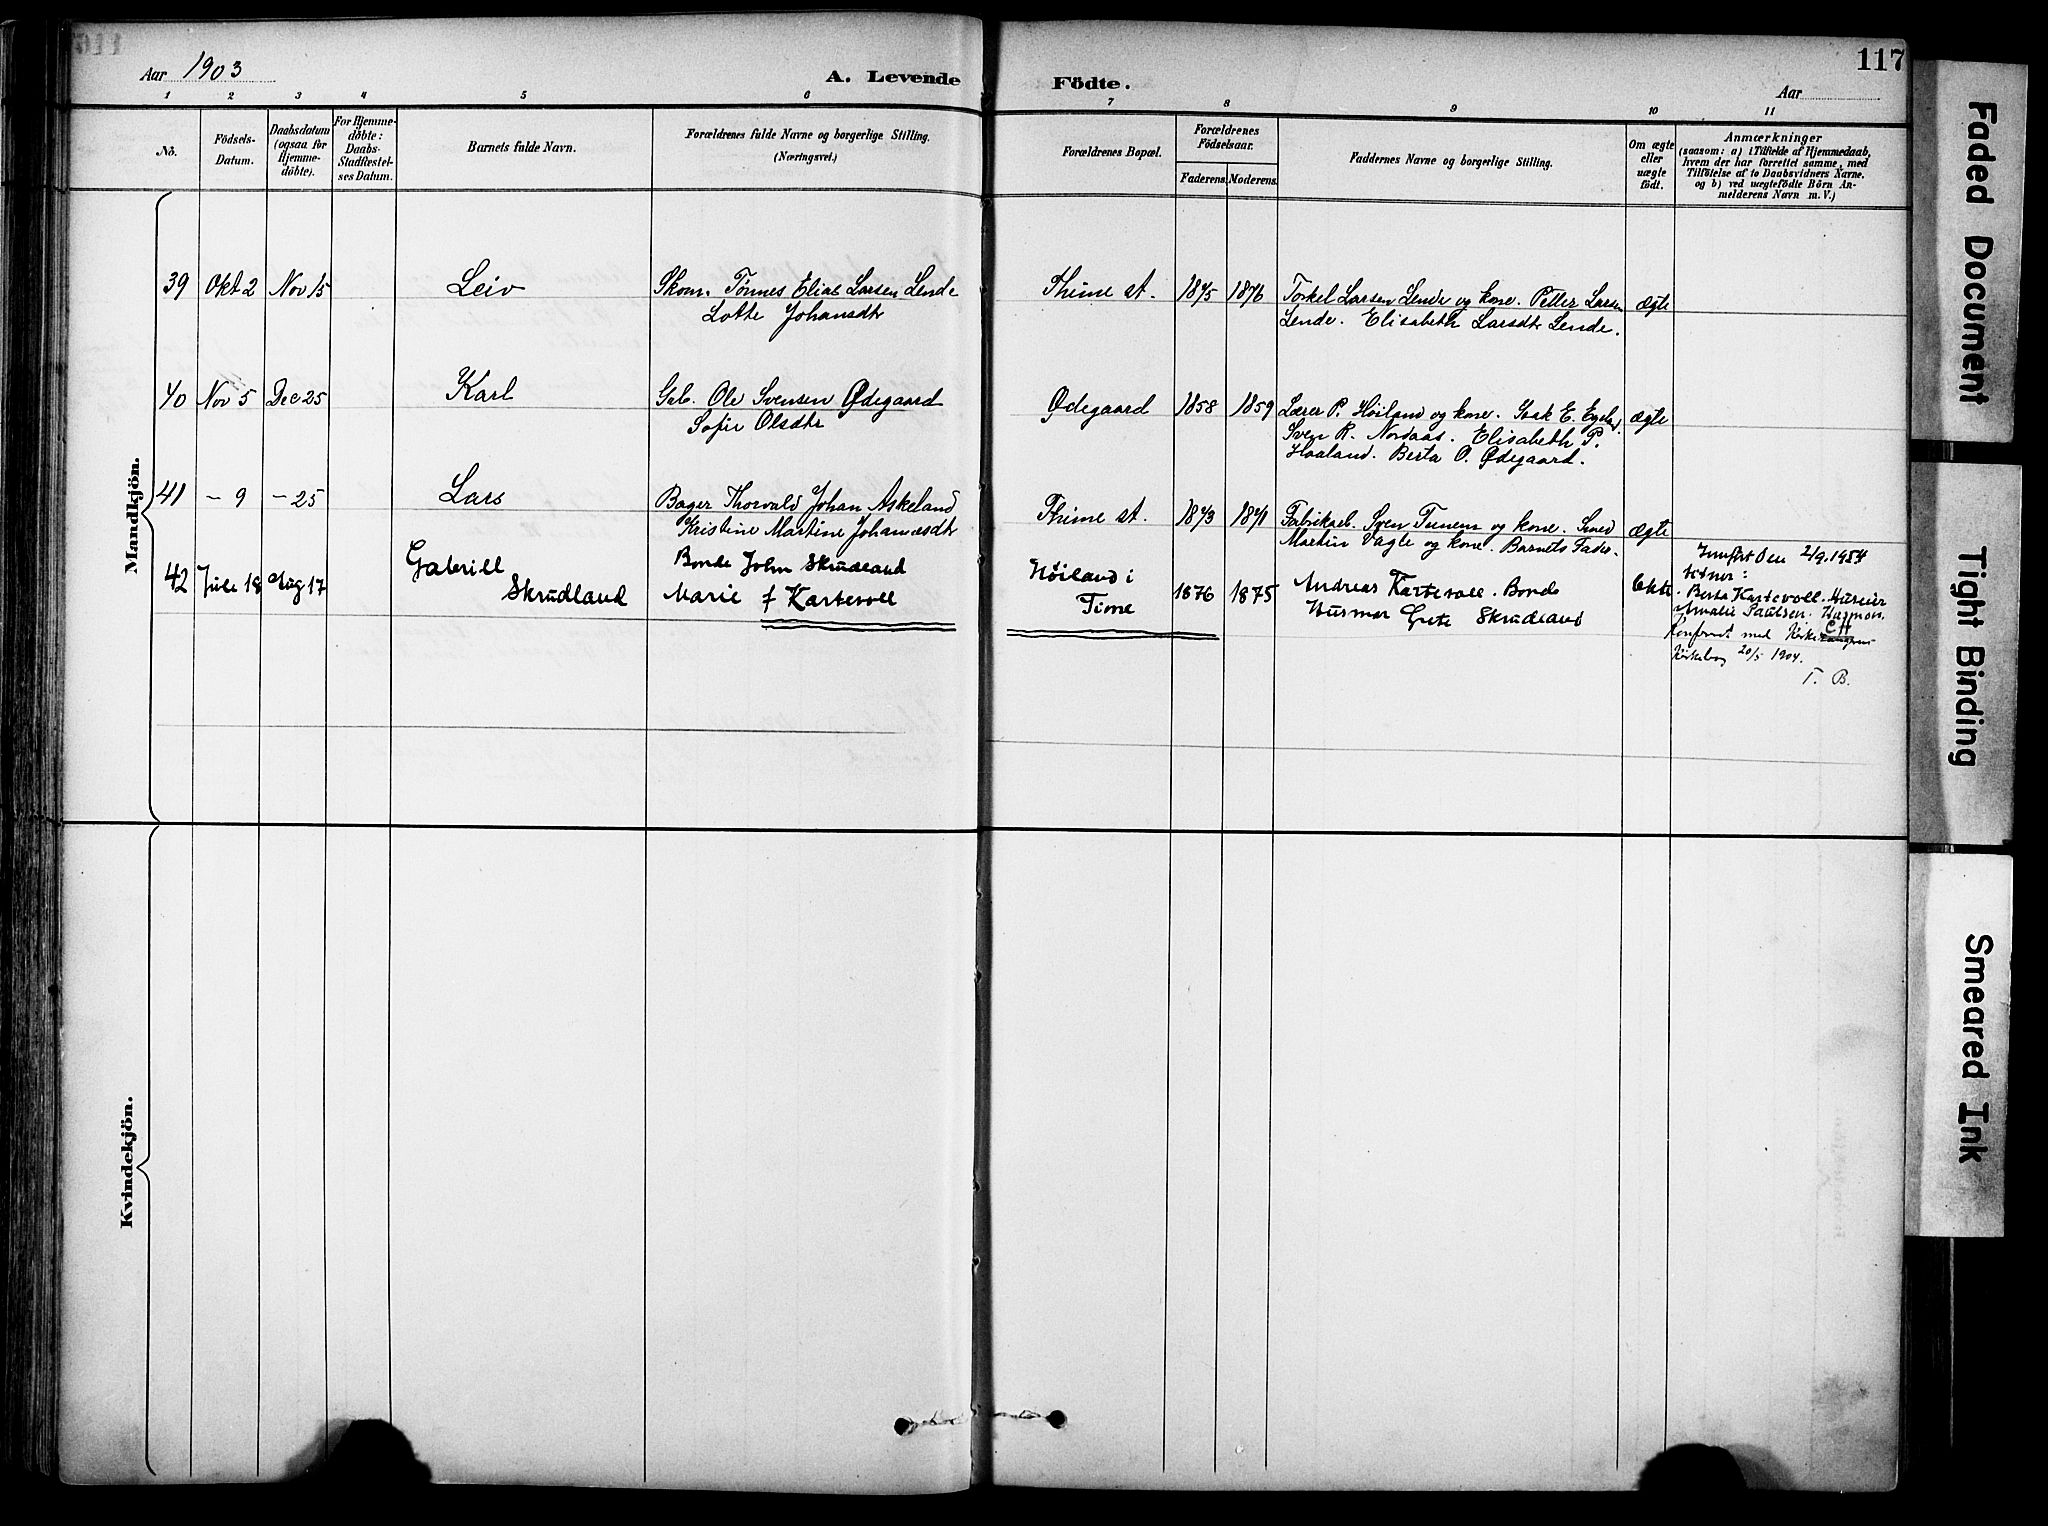 Aar 1903
A. Levende Födte.
117
Aar
1 2 3 4 5 6 7 8 9 10 11
No.
Födsels-
Datum.
Daabsdatum
(ogsaa for
Hjemme-
döbte).
For Hjemme-
döbte:
Daabs-
Stadfæstel-
ses Datum.
Barnets fulde Navn.
Forældrenes fulde Navne og borgerlige Stilling.
(Næringsvei.)
Forældrenes Bopæl.
Forældrenes
Födselsaar.
Faderens. Moderens.
Faddernes Navne og borgerlige Stilling.
Om ægte
eller
uægte
födt.
Anmærkninger
(saasom: a) i Tilfælde af Hjemmedaab,
hvem der har forrettet samme, med
Tilföielse af to Daabsvidners Navne,
og b) ved uægtefödte Börn An-
melderens Navn m. V.)
Mandkjön.
39 Okt 2 Nov 15 Leiv Skom. Tönnes Elias Larsen Lende
Lotte Johansdtr
Thime st. 1875 1876
Torkel Larsen Lende og kone. Petter Larsen
Lende. Elisabeth Larsdtr Lende.
ægte
40 Nov 5 Dec 25 Karl Gab. Ole Svensen Ødegaard
Sofie Olsdtr
Ødegaard 1858 1859
Lærer P. Høiland og kone. Isak E. Egeland.
Sven R. Nordaas. Elisabeth P.
Haaland. Berta O. Ødegaard.
ægte
41 - 9 - 25 Lars Bager Thorvald Johan Askeland
Kristine Martine Johannesdtr
Thime st. 1873 1871
Fabrikarb. Sven Tunem og kone. Smed
Martin Vagle og kone. Barnets Fader.
ægte
42 Juli 18 Aug 17 Gabriell
Skrudland
Bonde John Skrudland
Marie f Kartevoll
Høiland i
Time
1876 1875
Andreas Kartevoll. Bonde
Husmor Grete Skrudland
Ekte
Innført den 2/9.1954
Vitner:
Berta Kartevoll. Huseier
Amalie Paulsen. Husmor.
Konferert med
20/5 1904.
T. B.
Kvindekjön.
Faded Document
Tight Binding
Smeared Ink